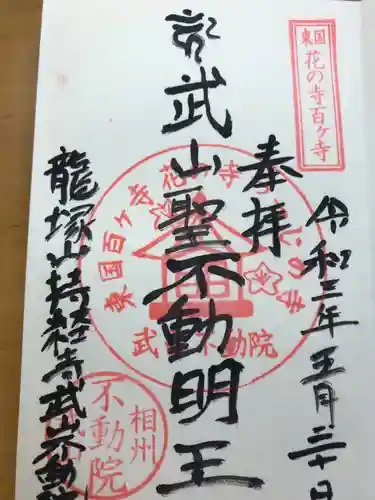 東国花の寺百ヶ寺
奉拝
令和三年五月三十日
武山聖不動明王
東国百ヶ寺
花の寺
武山不動院
相州
不動院
龍塚山持経寺武山不動院